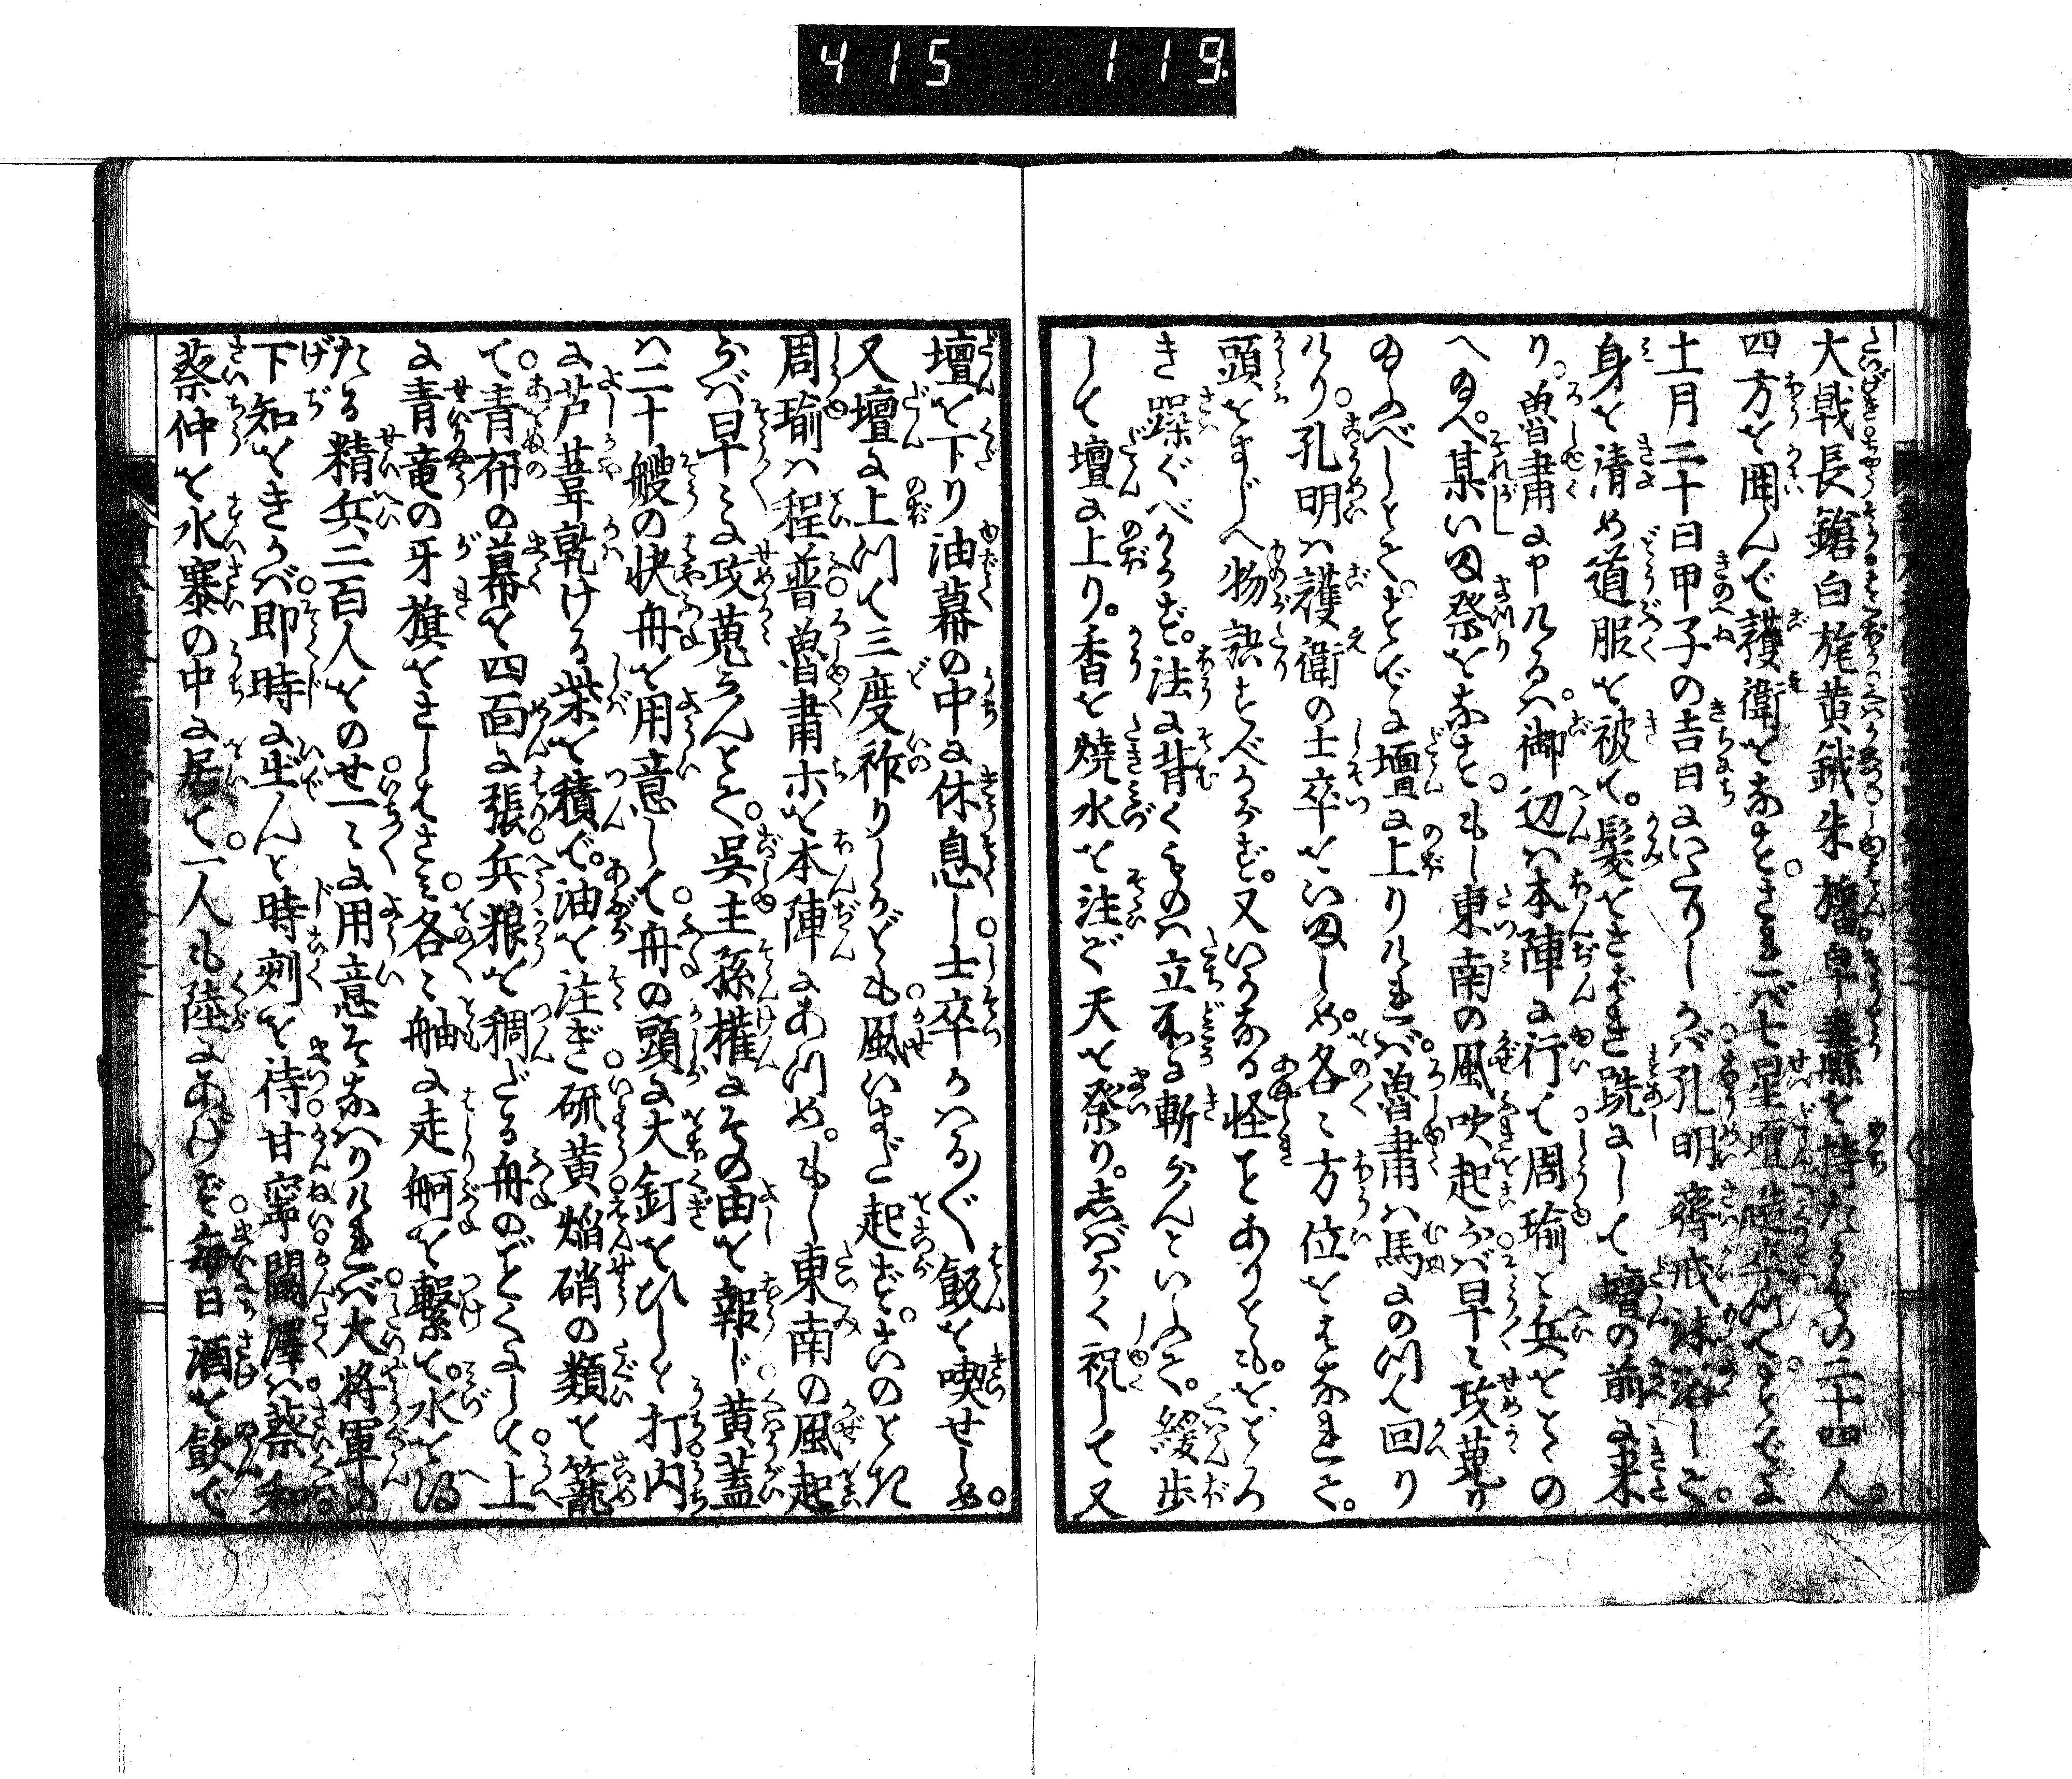 415 119
大戟長鎗白旄黄鉞朱旛皁纛を持たるもの二十四人
四方を囲んで護衛をなす。されば七星壇造畢りてすでに
十一月二十日甲子の吉日にいたりしかば孔明齋戒沐浴して。
身を清め道服を被て。髪をさばき跣にして壇の前に来
り。魯肅に申けるハ。御辺ハ本陣に行て周瑜と兵をとゝの
へ給へ。某いま祭をなす。もし東南の風吹起らバ早々攻蒐り
給ふべしとて。すでに壇に上りければ。魯肅ハ馬にのつて回り
けり。孔明ハ護衛の士卒をいましめ。各々方位をはなれそ。
頭をまじへ物語すべからず。又いかなる怪ことありとも。をどろ
き躁ぐべからず。法に背くものハ立所に斬らんといふて。緩歩
して壇に上り。香を焼水を注ぎ天を祭り。志ばらく祝して又
壇を下り油幕の中に休息し。士卒かハる〴〵飯を喫せしめ。
又壇に上つて三度祚りしかども。風いまだ起ず。さいのとき
周瑜ハ程普魯肅ホを本陣にあつめ。もし東南の風起
らバ早々に攻蒐らんとて。呉主孫權にその由を報じ。黄蓋
ハ二十艘の快舟を用意して。舟の頭に大釘をひしと打。内
に芦葦乾ける柴を積で。油を注ぎ硫黄焔硝の類を籠
。青布の幕を四面に張。兵粮を積だる舟のごとくにして。上
に青竜の牙旗をさしはさミ。各々舳に走舸を繋て。水を得
たる精兵二百人をのせ。一々に用意そなハりければ。大将軍の
下知をきかバ。即時に出んと時刻を待。甘寧闞澤ハ。蔡和
蔡仲を水寨の中に居て。一人も陸にあげず。毎日酒を飲で